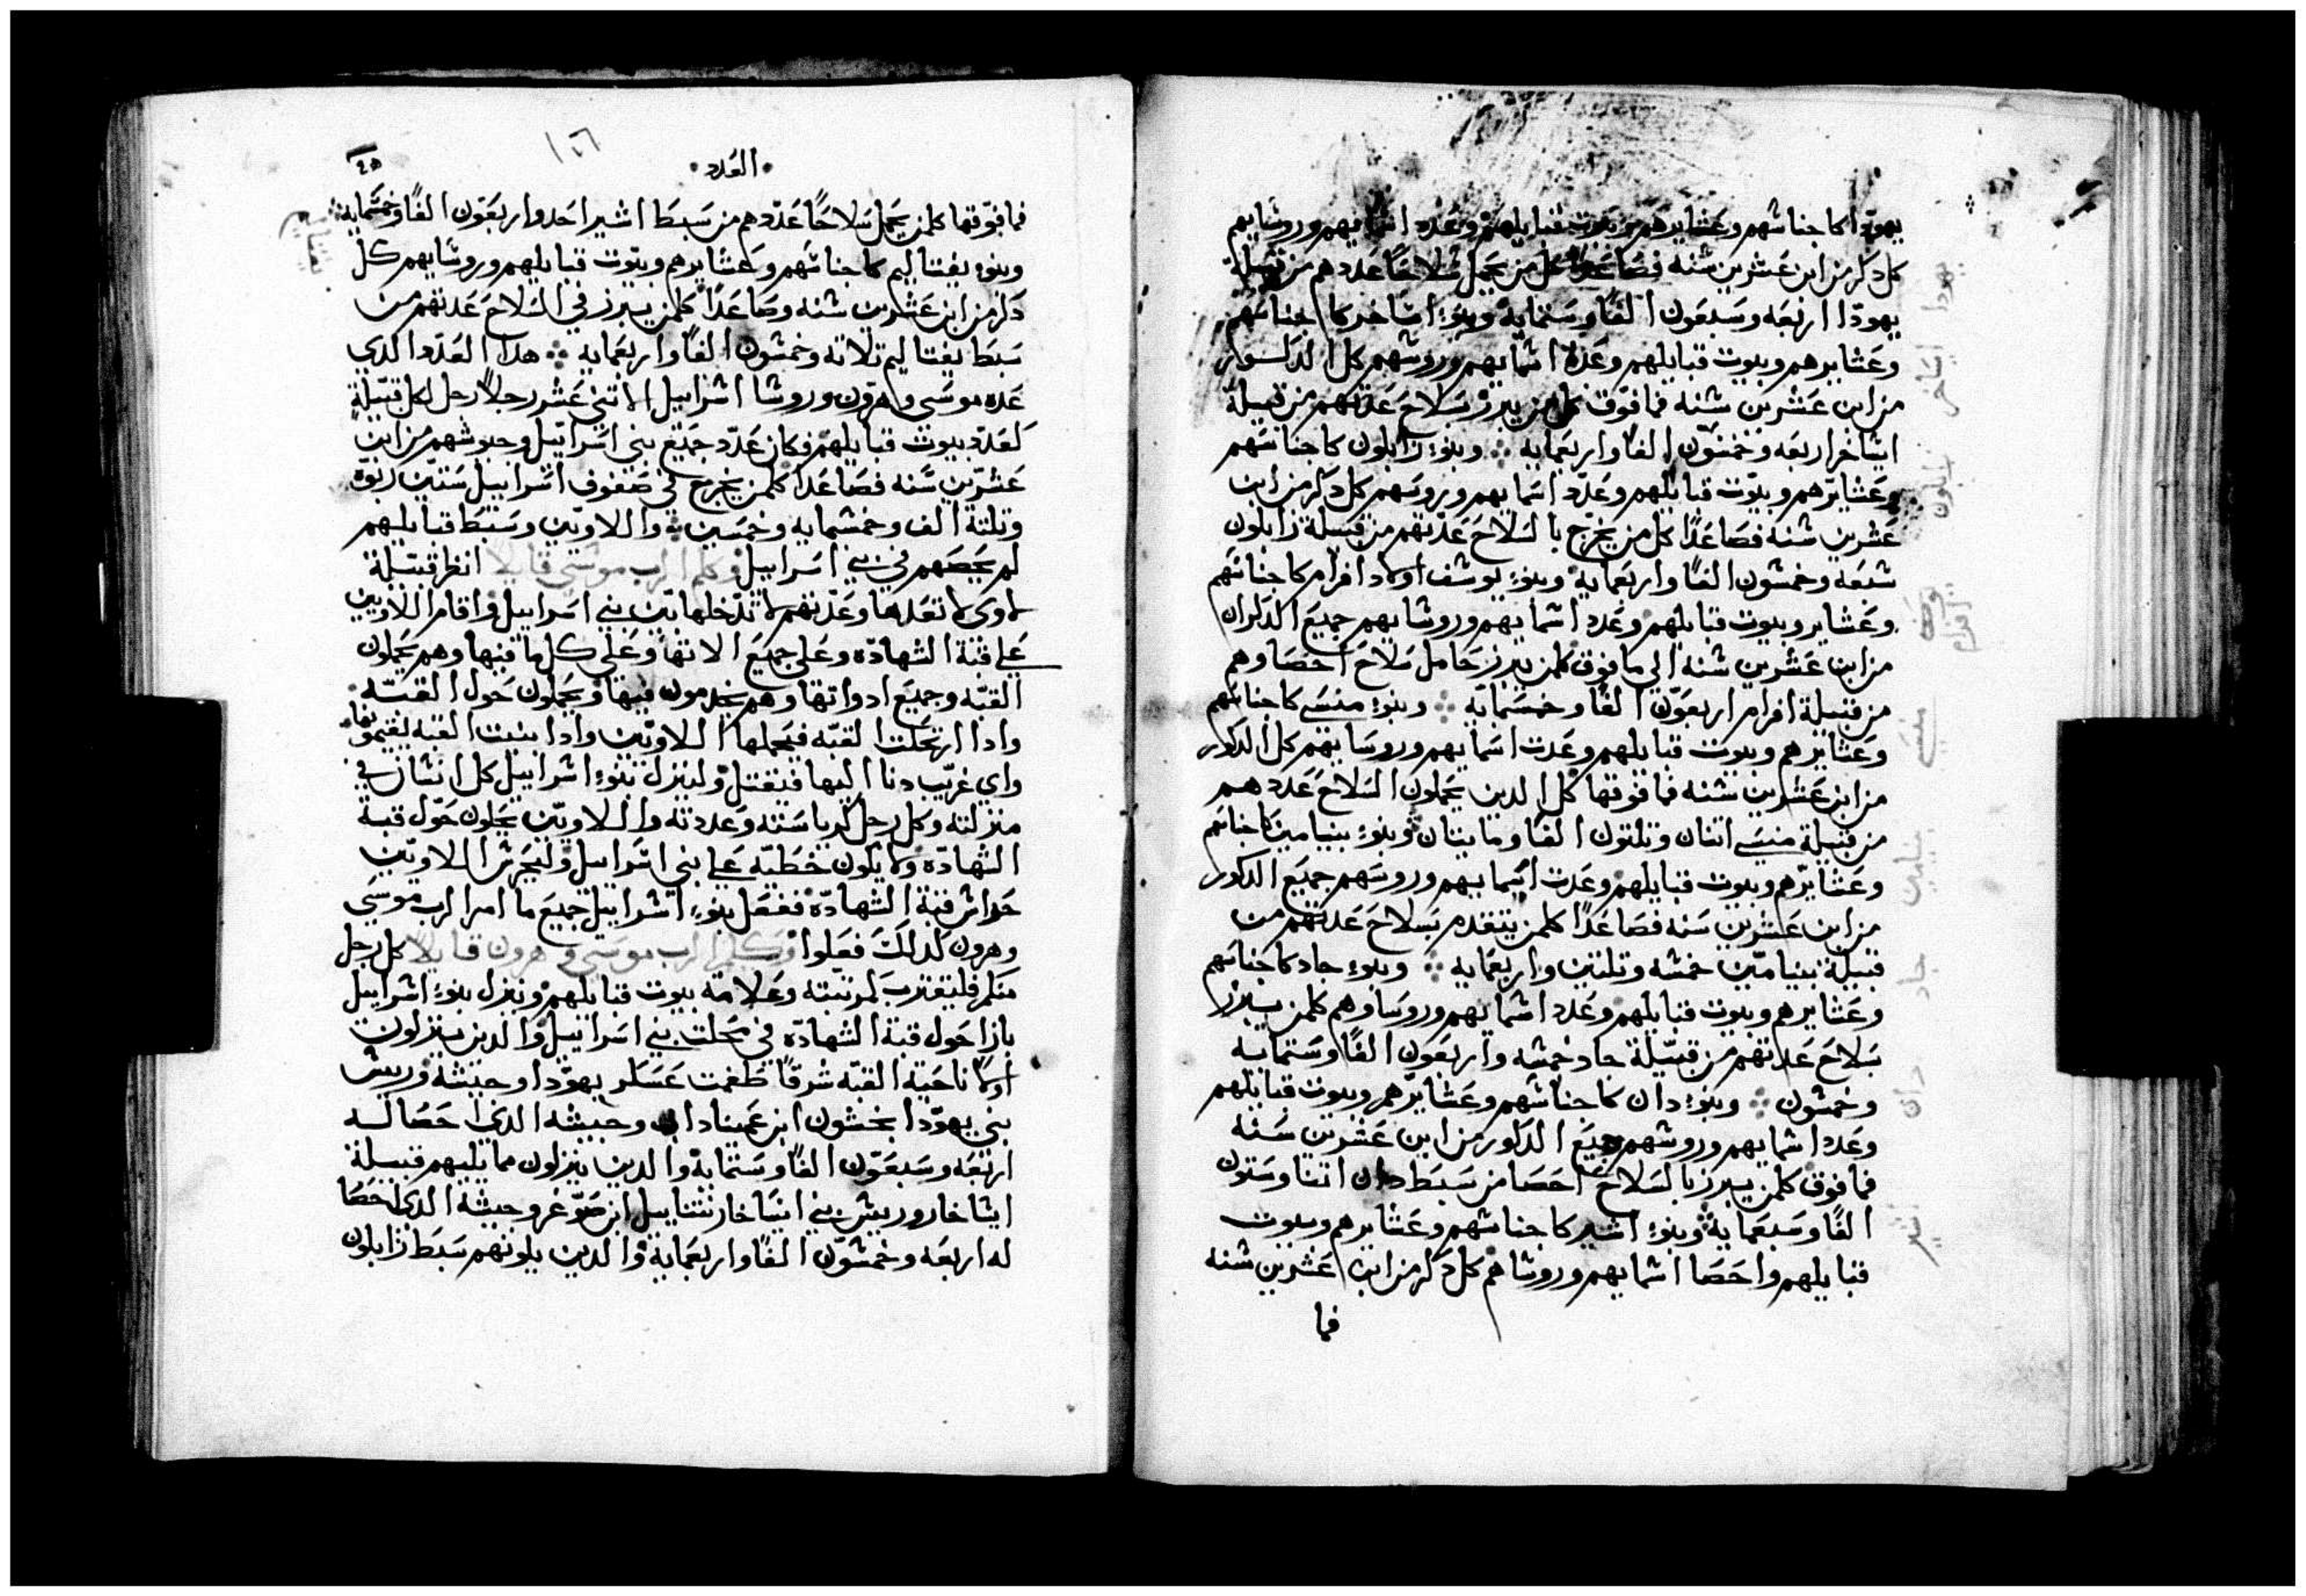 يهودا كاجناسهم وعشايرهم وبيوت قبايلهم وعدد اسمايهم وروسايهم
كل دكر من ابن عشرين سنه فصاعدا كل من يحمل سلاحا عددهم من قبيلة
يهودا اربعه وسبعون الفا وستمايه وبنوء ايساخر كاجناسهم
وعشايرهم وبيوت قبايلهم وعدة اسمايهم وروسهم كل الدكور
من ابن عشرين سنه فما فوق كلمن يبرز بسلاح عدتهم من قبيلة
ايساخر اربعه وخمسون الفا واربعمايه وبنوء زابلون كاجناسهم
وعشايرهم وبيوت قبايلهم وعدد اسمايهم وروسهم كل دكر من ابن
عشرين سنه فصاعدا كل من يخرج بالسلاح عدتهم من قبيلة زابلون
سبعه وخمسون الفا واربعمايه وبنوء يوسف اولاد افرام كاجناسهم
وعشاير وبيوت قبايلهم وعدد اسمايهم وروسايهم جميع الدكران
من ابن عشرين سنه الى ما فوق كلمن يبرز حامل سلاح احصاوهم
من قبيلة افرام اربعون الفا وخمسمايه وبنوء منسى كاجناسهم
وعشايرهم وبيوت قبايلهم وعدت اسمايهم وروسايهم كل الدكور
من ابن عشرين سنه فما فوقها كل الدين يحملون السلاح عددهم
من قبيلة منسى اتنان وتلتون الفا ومايتان وبنوء بنيامين كاجناسهم
وعشايرهم وبيوت قبايلهم وعدت اسمايهم وروسهم جميع الدكور
من ابن عشرين سنه فصاعدا كلمن يتقدم بسلاح عدتهم من
قبيلة بنيامين خمسه وتلتين واربعمايه وبنوء جاد كاجناسهم
وعشايرهم وبيوت قبايلهم وعدد اسمايهم وروساوهم كلمن يبرز
بسلاح عدتهم من قبيلة جاد خمسه واربعون الفا وستمايه
وخمسون وبنوء دان كاجناسهم وعشايرهم وبيوت قبايلهم
وعدد اسمايهم وروسهم جميع الدكور من ابن عشرين سنه
فما فوق كلمن يبرز بالسلاح احصا من سبط دان اتنا وستون
الفا وسبعمايه وبنوء اشير كاجناسهم وعشايرهم وبيوت
قبايلهم واحصا اسمايهم وروساهم كل دكر من ابن عشرين سنه
فما
يهودا
زابلون
افرام
منسى
بنيامين
جاد
دان
اشير
العدد
١٢٦
فما فوقها كلمن يحمل سلاحا عددهم من سبط اشير احد واربعون الفا وخمسمايه
وبنوء يفتاليم كاجناسهم وعشايرهم وبيوت قبايلهم وروسايهم كل
دكر من ابن عشرين سنه وصاعدا كلمن يبرز في السلاح عدتهم من
سبط يفتاليم تلاته وخمسون الفا واربعمايه هدا العدد الدي
عده موسى وهرون وروسا اسراييل الاتنى عشر رجلا رجل لكل قبيلة
كعدد بيوت قبايلهم فكان عدد جميع بني اسراييل وجيوشهم من ابن
عشرين سنه فصاعدا كلمن يخرج في صفوف اسراييل ستين ربوه
وتلتة الف وخمسمايه وخمسين واللاويين وسبط قبايلهم
لم يحصهم في بني اسراييل وكلم الرب موسى قايلا انظر قبيلة
لاوى لا تعدها وعدتهم لا تدخلها بين بني اسراييل واقام اللاويين
على قبة الشهاده وعلى جميع الاتها وعلى كل ما فيها وهم يحملون
القبه وجميع ادواتها وهم يخدمون فيها ويحملون حول القبه
وادا ارتحلت القبه فيحملها اللاويين وادا بنيت القبه يقيموها
واي غريب دنا اليها فيقتل ولينزل بنوء اسراييل كل انسان في
منزلته وكل رجل لرياسته وعددته واللاويين يحلون حول قبة
الشهاده ولا يكون خطيه على بني اسراييل وليحرس اللاويين
حواس قبة الشهاده ففعل بنوء اسراييل جميع ما امر الرب موسى
وهرون كدلك فعلوا وكلم الرب موسى وهرون قايلا كل رجل
منكم فليقترب لمرتبته وعلامة بيوت قبايلهم وينزل بنوء اسراييل
بازا حول قبة الشهاده في محلت بني اسراييل والدين ينزلون
اولا ناحية القبه شرقا طغمت عسكر يهودا وجيشه وريس
بني يهودا نحشون ابن عميناداب وجيشه الدي احصا له
اربعه وسبعون الفا وستمايه والدين ينزلون مما يليهم قبيلة
ايساخار وريس بني ايساخار نتناييل ابن صوغر وجيشه الدي احصا
له اربعه وخمسون الفا واربعمايه والدين يلونهم سبط زابلون